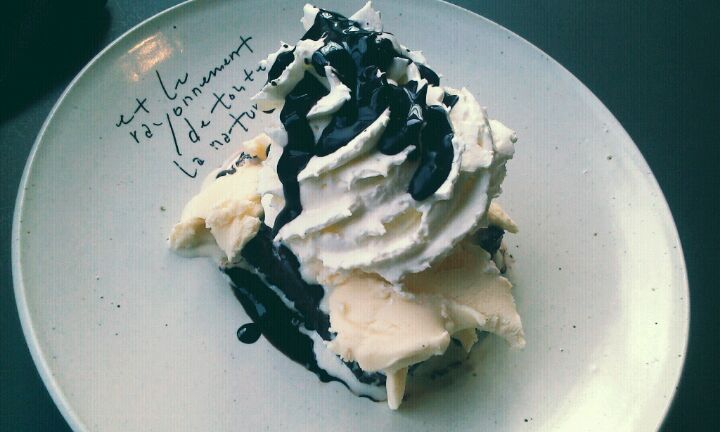 et le
rayonnement
de toute
la natur